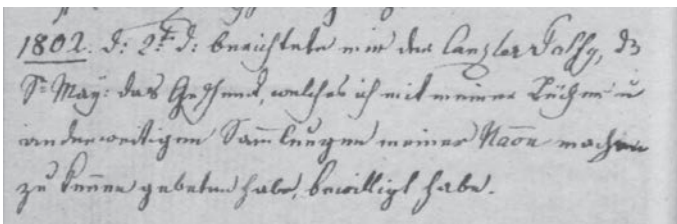 1802. d: 2t d: berichtete mir der Canzler Palffy, dß
Sr May: das Geschenk, welches ich mit meiner Bücher u
anderweitigen Sammlungen meiner Naōn machen
zu können gebeten habe, bewilligt habe.